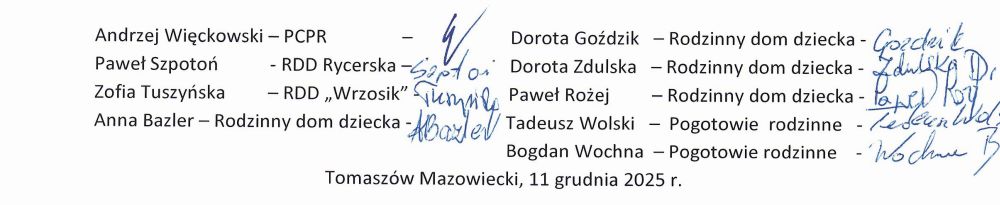 Andrzej Więckowski – PCPR –
Paweł Szpotoń - RDD Rycerska – Szpotoń
Zofia Tuszyńska – RDD „Wrzosik” - Tuszyńska
Anna Bazler – Rodzinny dom dziecka - ABazler
Dorota Goździk – Rodzinny dom dziecka - Gozdzik
Dorota Zdulska – Rodzinny dom dziecka - Zdulska D.
Paweł Rożej – Rodzinny dom dziecka - Paweł
Tadeusz Wolski – Pogotowie rodzinne -
Bogdan Wochna – Pogotowie rodzinne - Wochna B
Tomaszów Mazowiecki, 11 grudnia 2025 r.